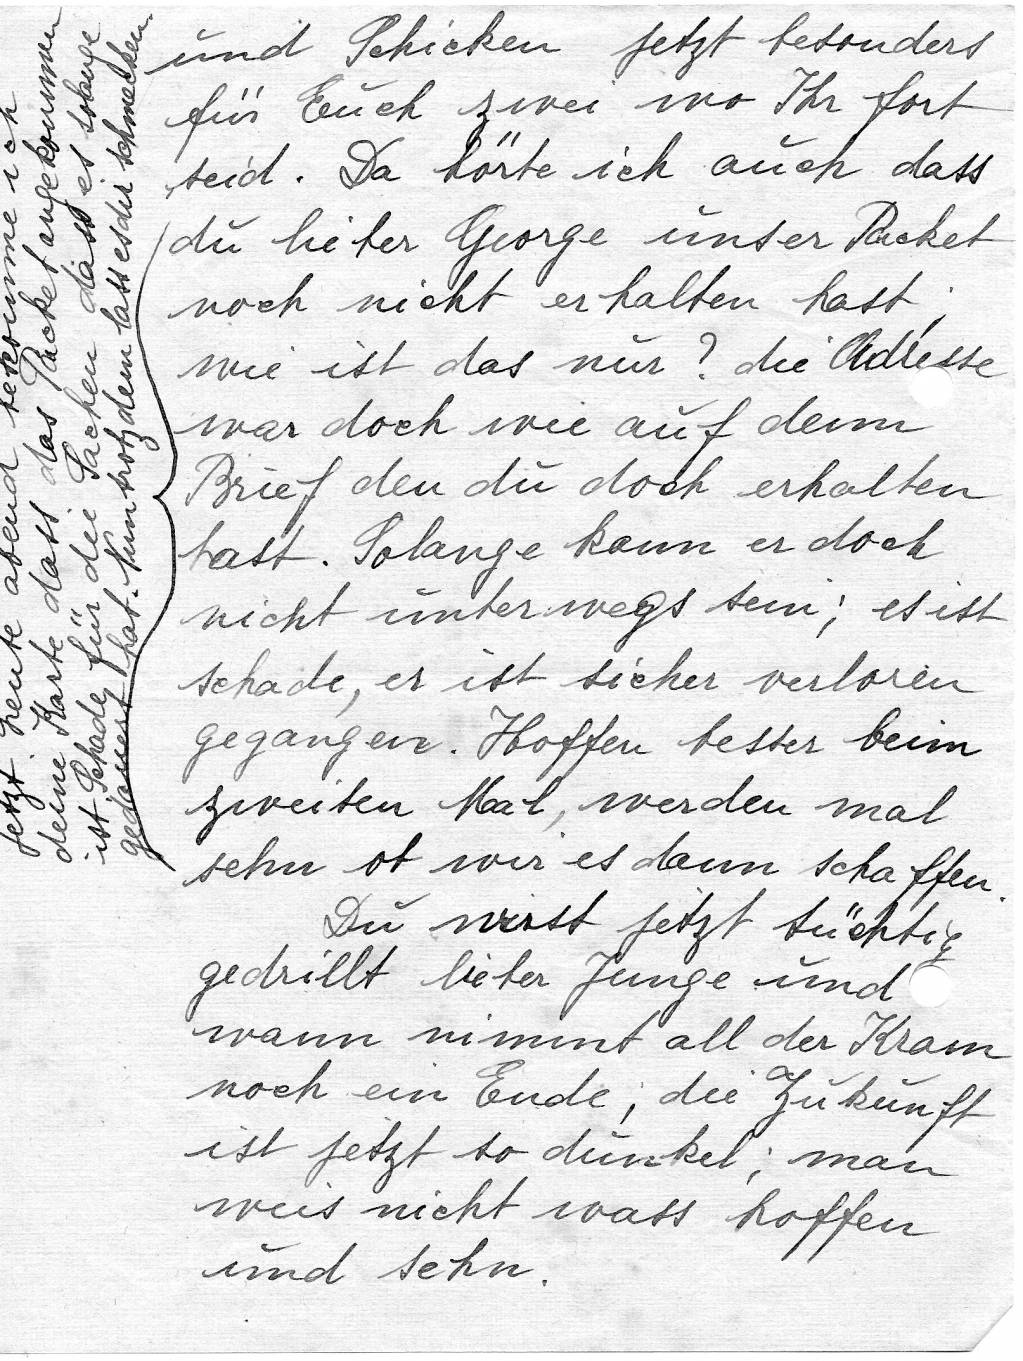 und Schicken jetzt besonders
für Euch zwei wo Ihr fort
seid. Da hörte ich auch dass
du lieber George unser Packet
noch nicht erhalten hast;
wie ist das nur? die Adresse
war doch wie auf dem
Brief den du doch erhalten
hast. Solange kann er doch
nicht unterwegs sein; es ist
schade, er ist sicher verloren
gegangen. Hoffen besser beim
zweiten Mal, werden mal
sehn ob wir es dann schaffen.
Du wirst jetzt tüchtig
gedrillt lieber Junge und
wann nimmt all der Kram
noch ein Ende; die Zukunft
ist jetzt so dunkel; man
weis nicht wass hoffen
und sehn.
Jetzt heute abend bekomme ich
deine Karte dass das Packet angekommen
ist. Schade für die Sachen dass es solange
gedauert hat. Nun trotzdem lass es dir schmecken.